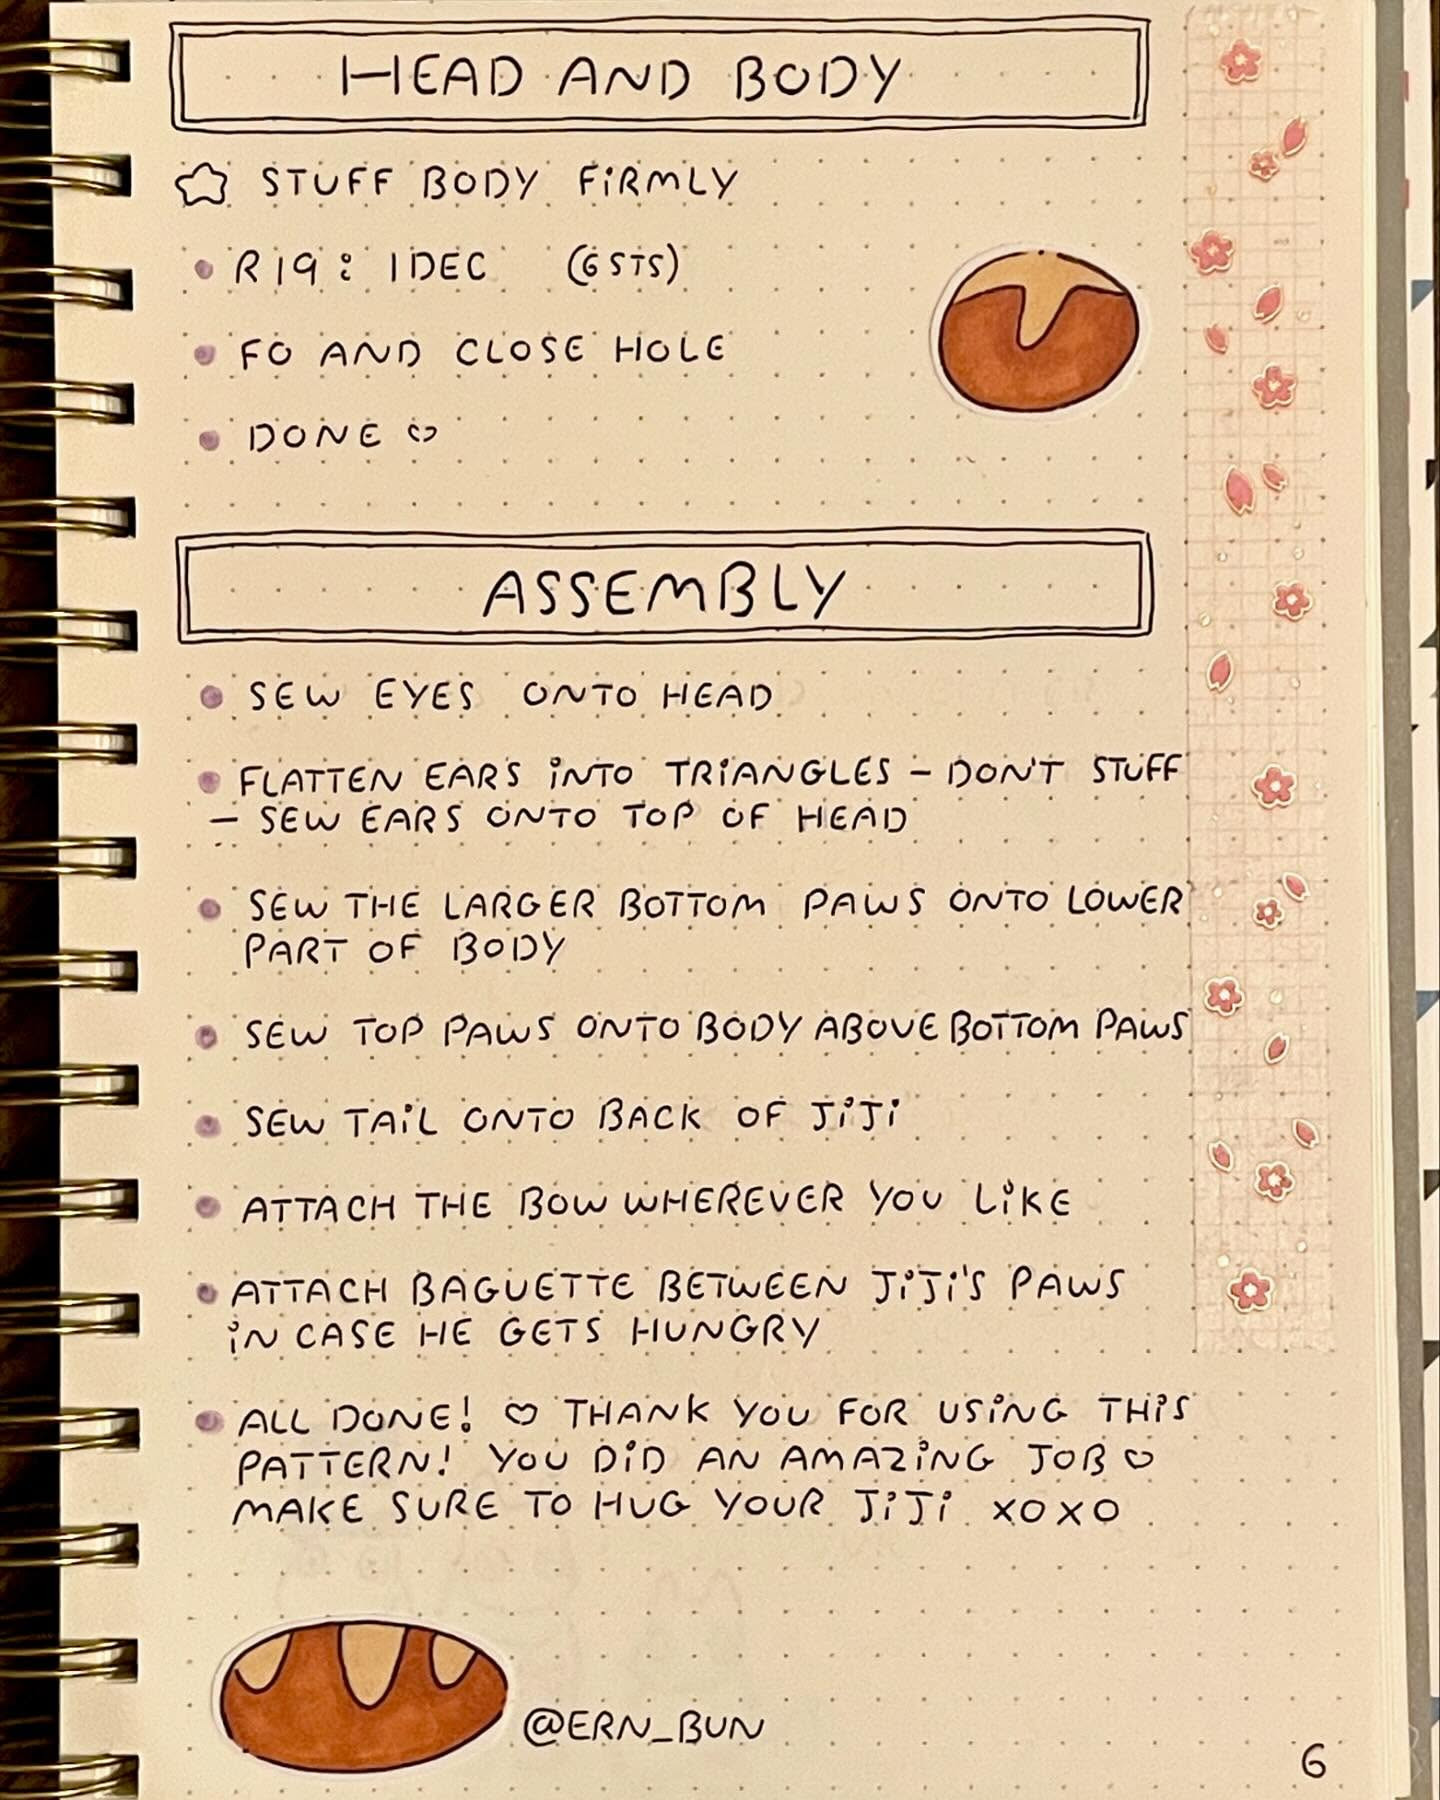 HEAD AND BODY
STUFF BODY FiRMLY
R19: 1DEC (6 STS)
FO AND CLOSE HOLE
DONE ♡
ASSEMBLY
SEW EYES ONTO HEAD
FLATTEN EARS iNTO TRiANGLES - DON'T STUFF
- SEW EARS ONTO TOP OF HEAD
SEW THE LARGER BOTTOM PAWS ONTO LOWER
PART OF BODY
SEW TOP PAWS ONTO BODY ABOVE BOTTOM PAWS
SEW TAiL ONTO BACK OF JiJi
ATTACH THE BOW WHEREVER YOU LiKE
ATTACH BAGUETTE BETWEEN JiJi'S PAWS
iN CASE HE GETS HUNGRY
ALL DONE! ♡ THANK YOU FOR USiNG THiS
PATTERN! YOU DiD AN AMAZiNG JOB ♡
MAKE SURE TO HUG YOUR JiJi XOXO
@ERN_BUN
6